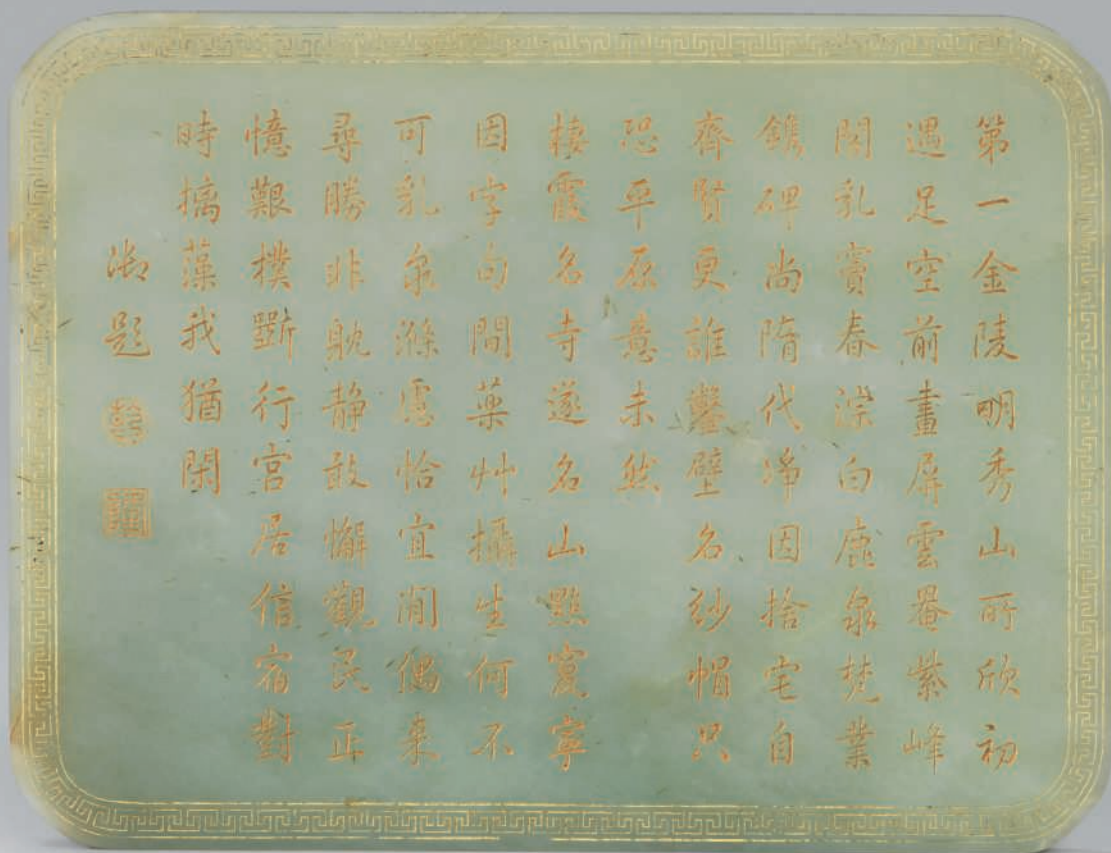 第一金陵明秀山所欣初
遇足空前畫屏雲罨紫峰
閣乳竇春淙白鹿泉梵業
鐫碑尚隋代淨因捨宅自
齊賢更誰鑿壁名紗帽只
恐平原意未然
棲霞名寺遂名山點竄寧
因字句間藥艸攝生何不
可乳泉滌慮恰宜閒偶來
尋勝非躭静敢懈觀民正
憶艱樸斵行宮居信宿對
時摛藻我猶閑
御題